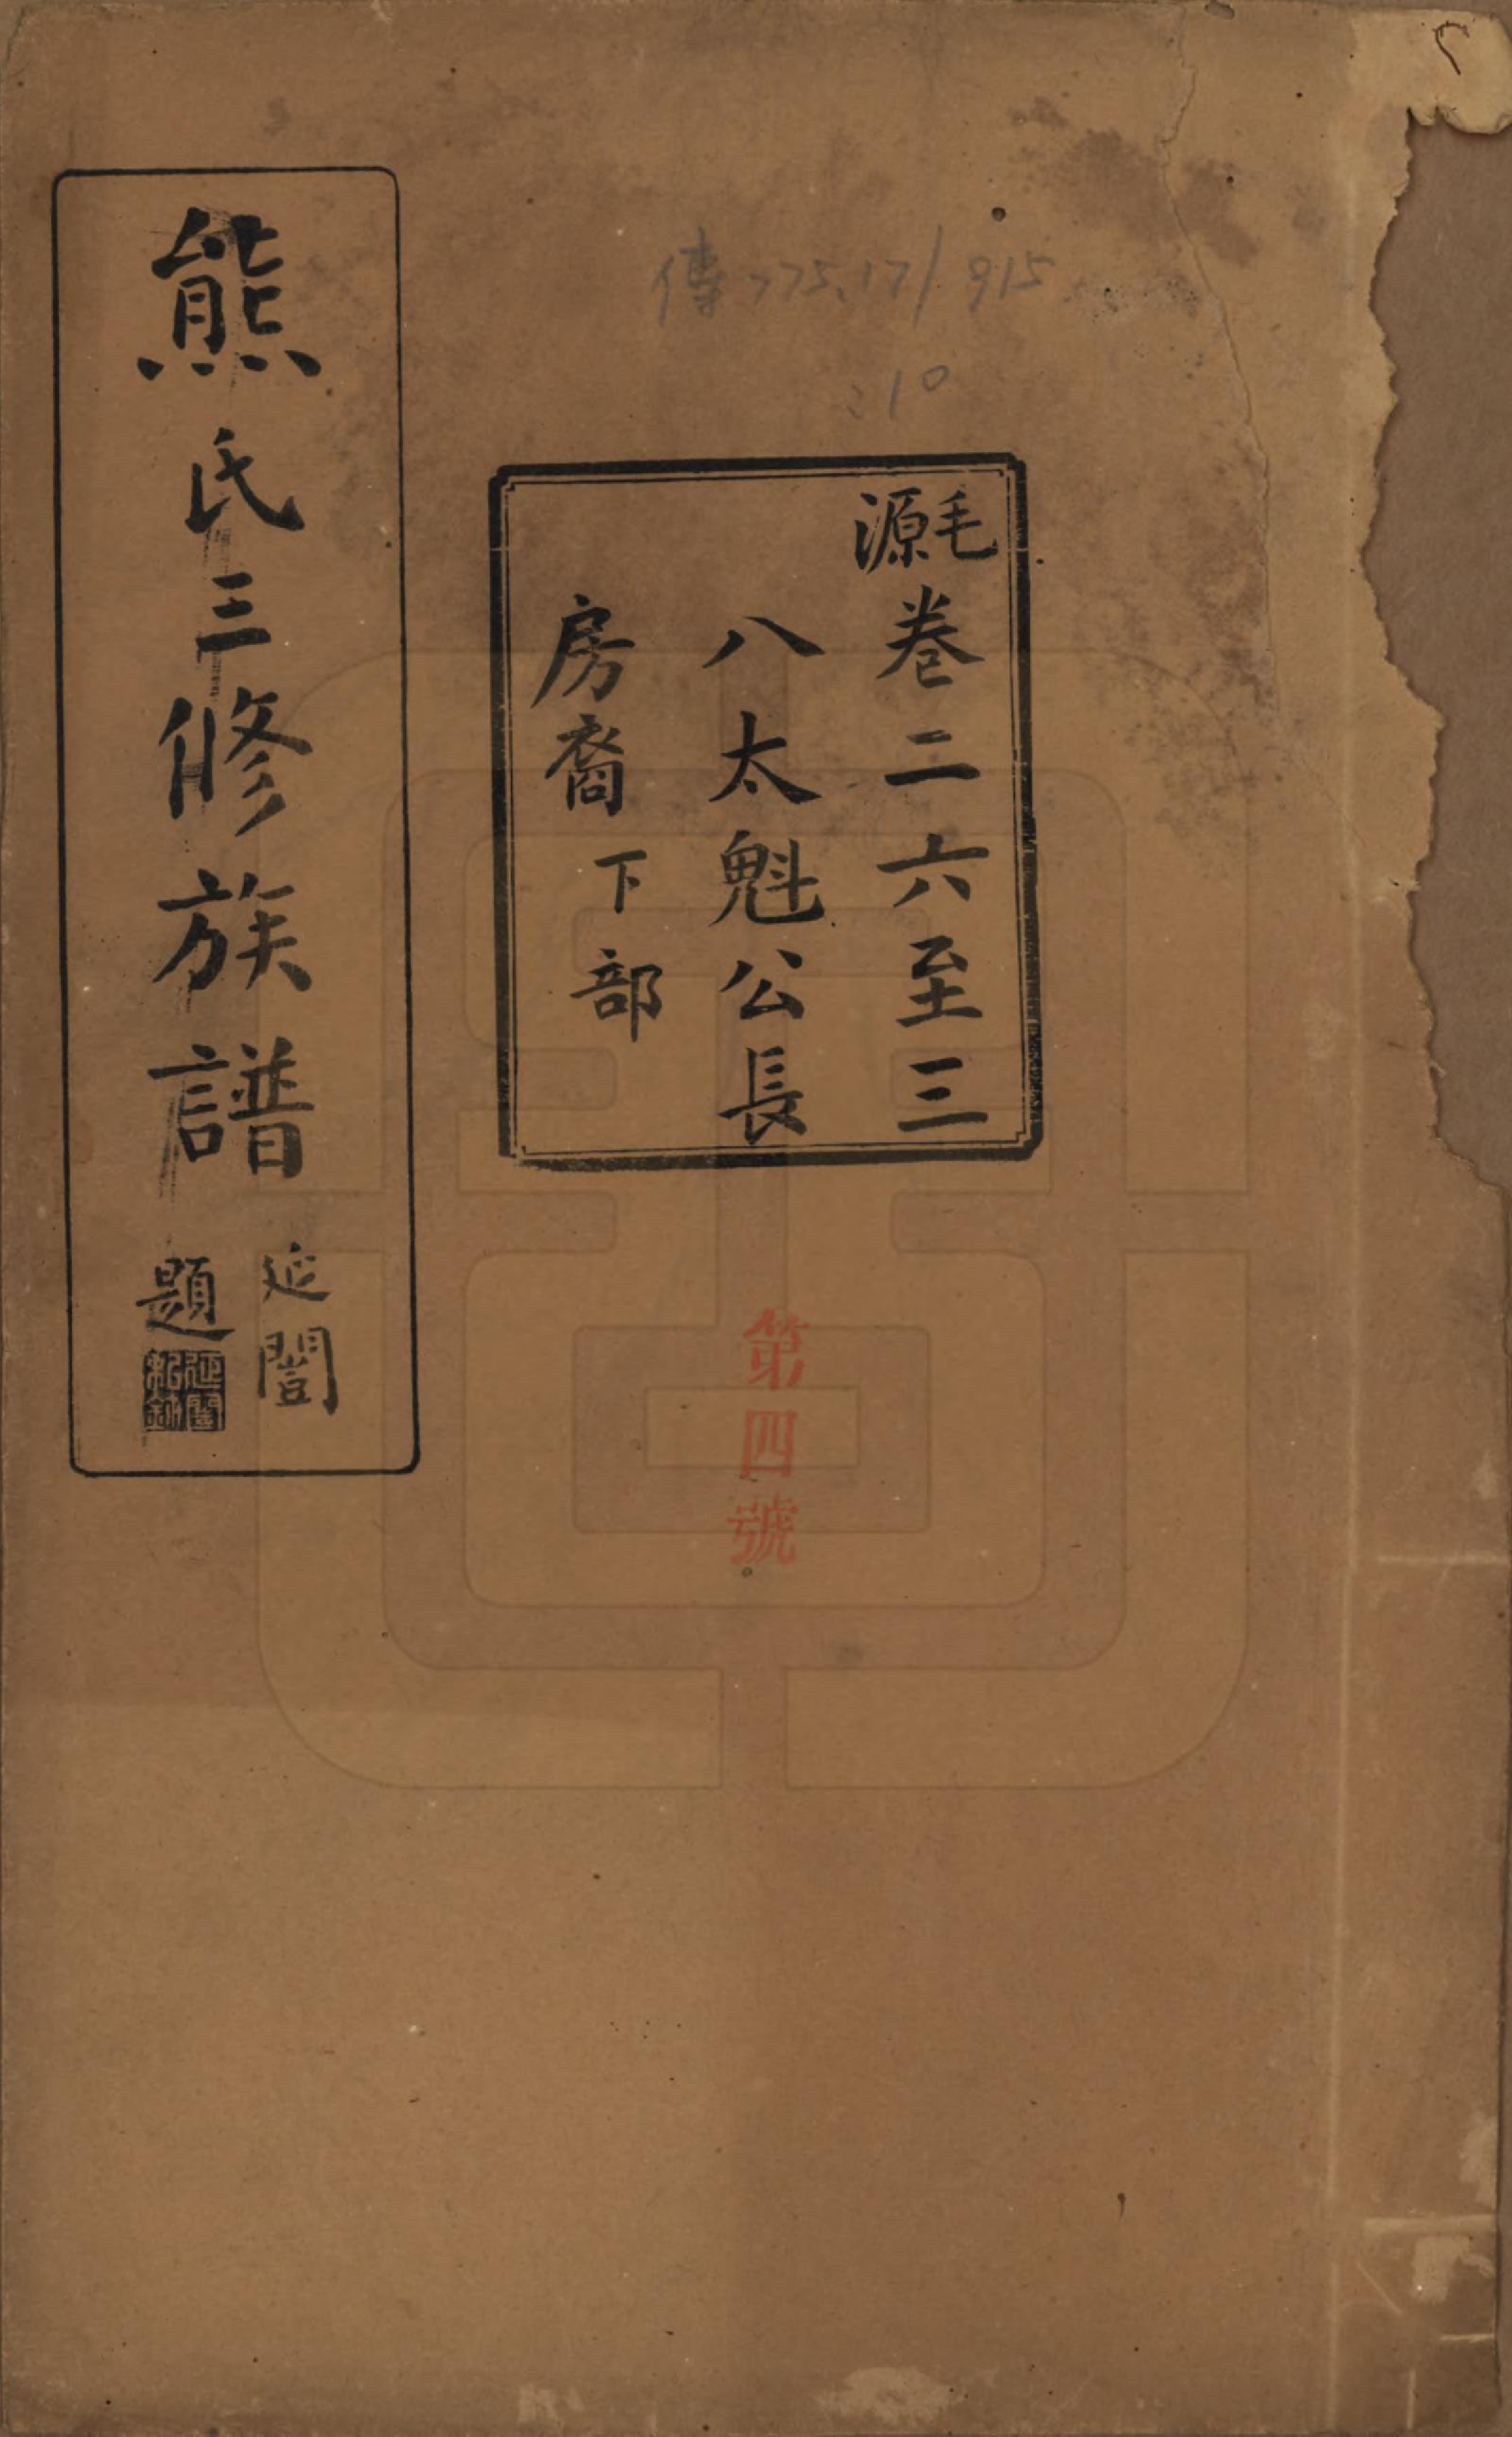 傳 775.17/915
210
毛源
卷二六至三
八太魁公長
房裔下部
熊氏三修族譜
延闓
題
第四號